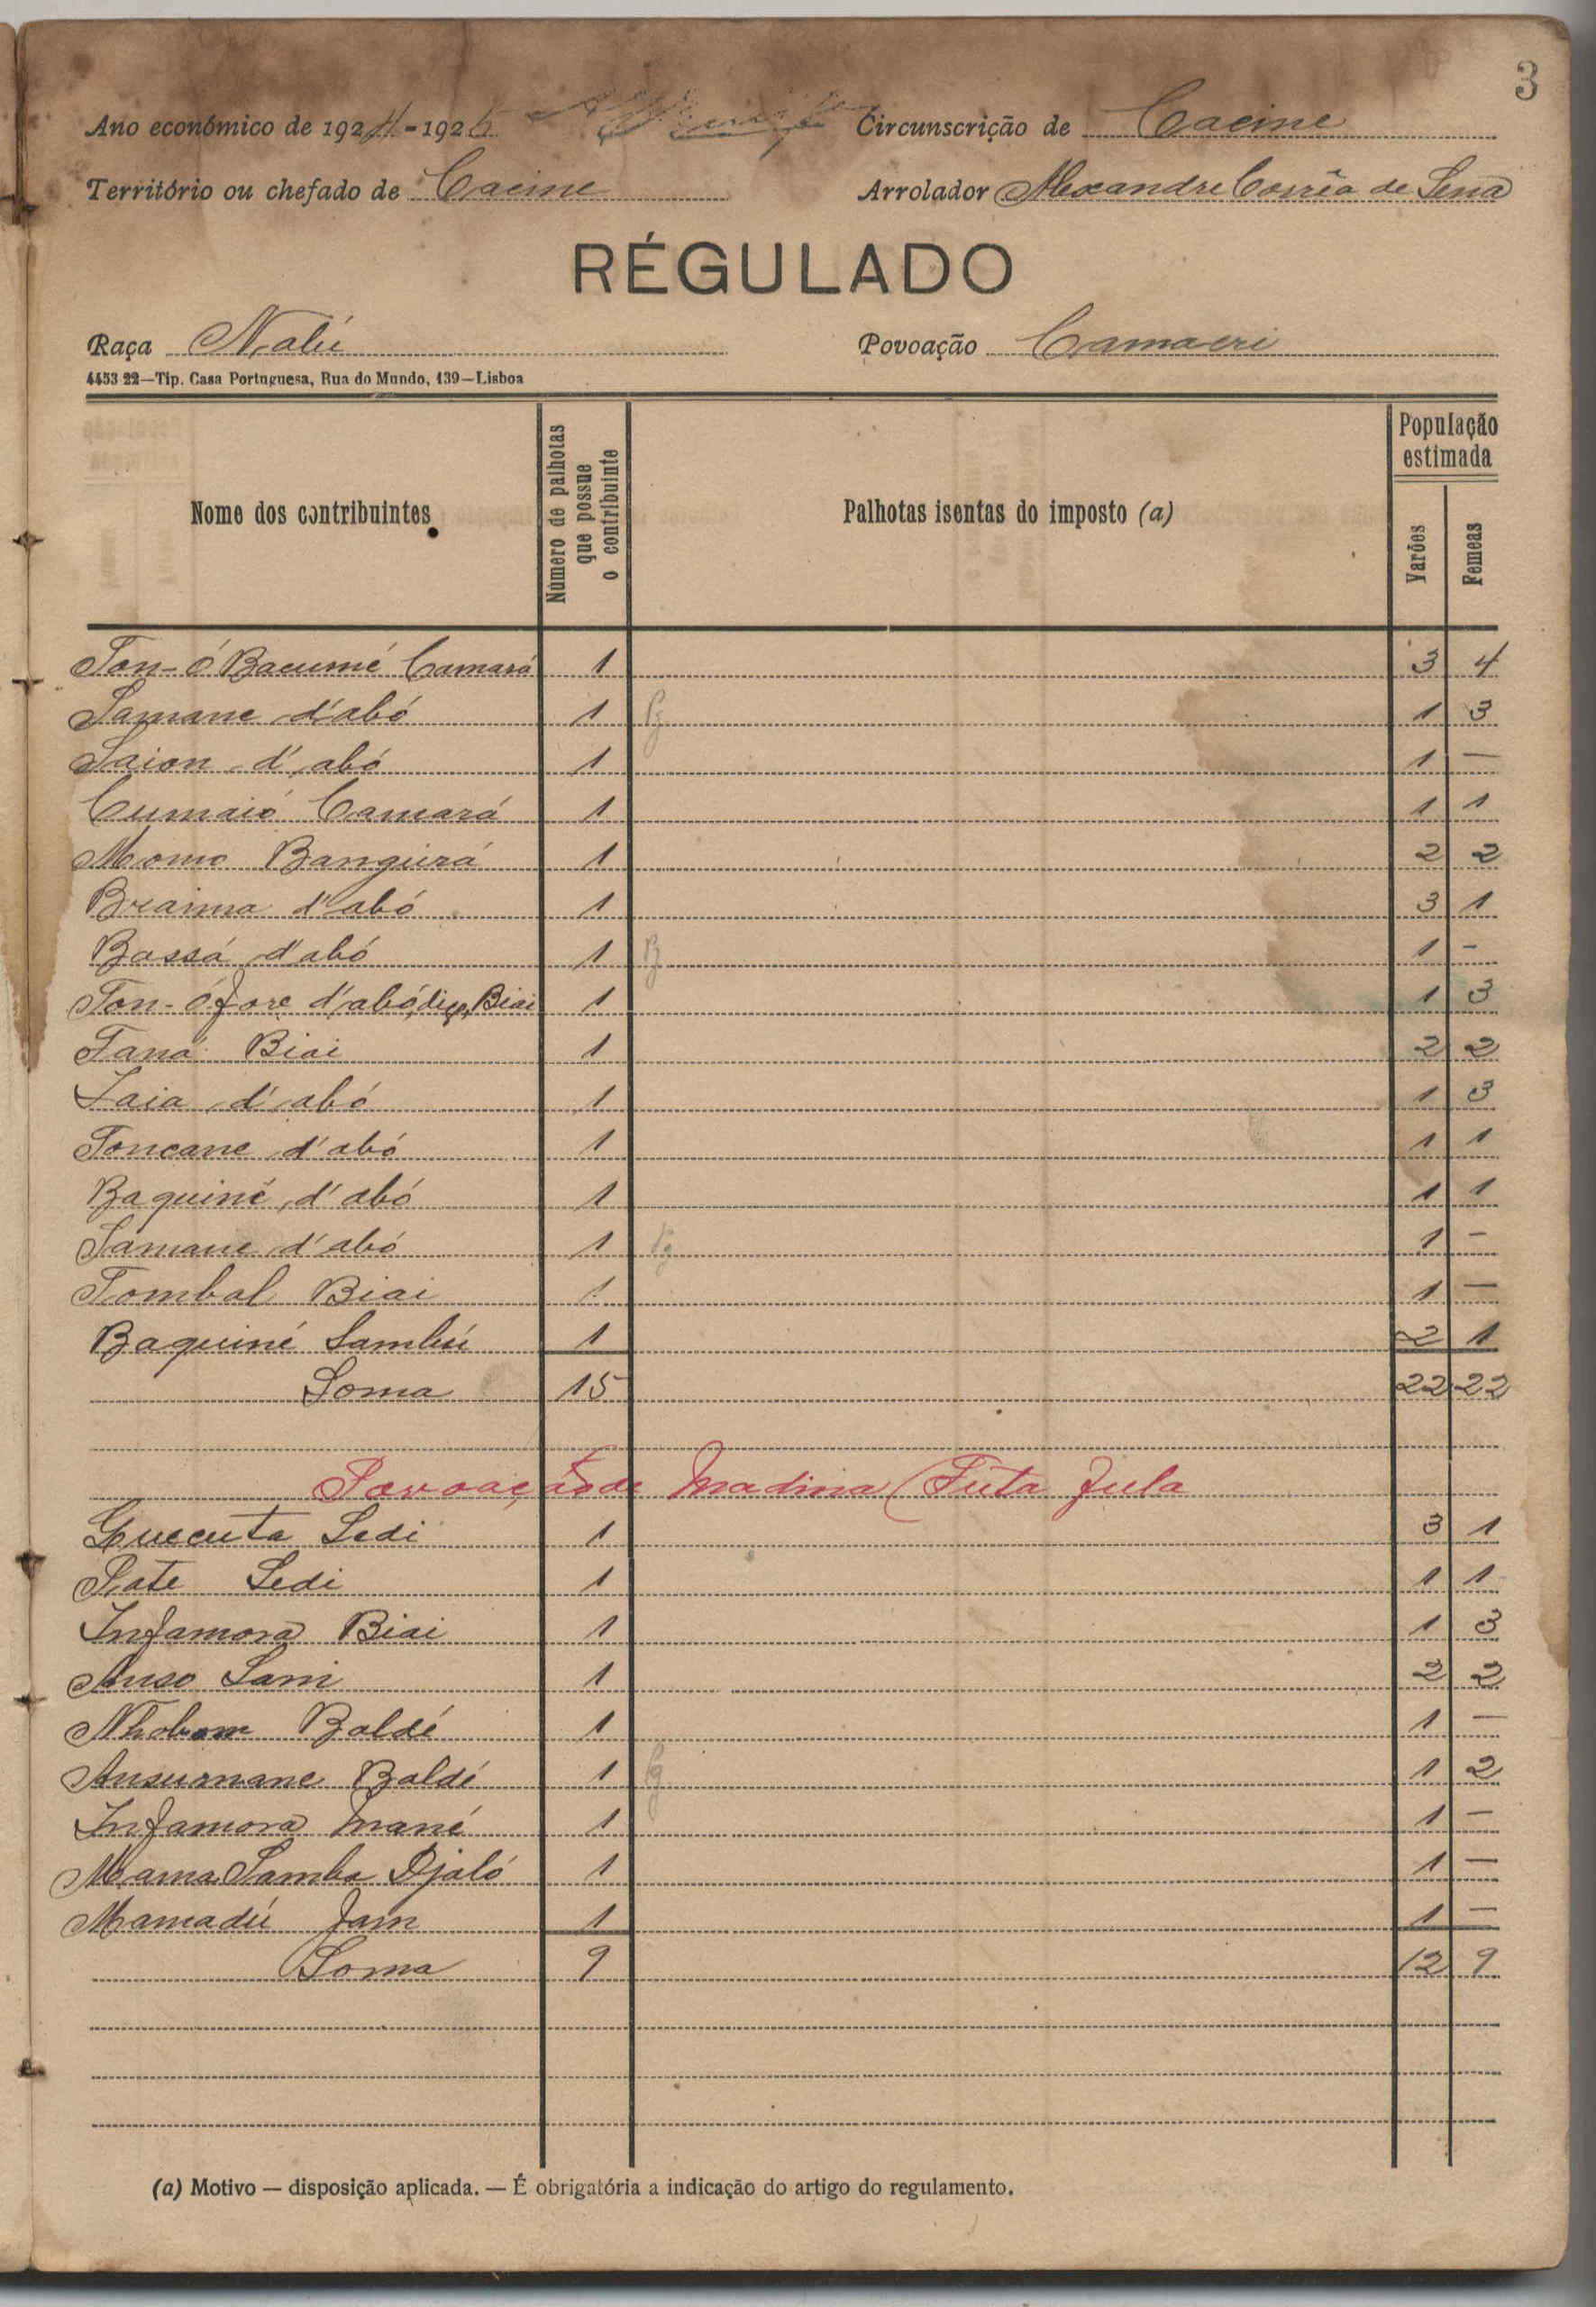 3
Ano económico de 1924-1925 Circunscrição de Cacine
Território ou chefado de Cacine Arrolador Alexandre Corrêa de Sena
RÉGULADO
Raça Nalú Povoação Camaeri
4453 22—Tip. Casa Portuguesa, Rua do Mundo, 139—Lisboa
Nome dos contribuintes Número de palhotas que possue o contribuinte Palhotas isentas do imposto (a) População estimada Varões Femeas
Ton-ó Bacumé Camará 1 3 4
Samane d'abó 1 1 3
Saion d'abó 1 1 —
Cumaió Camará 1 1 1
Momo Bangurá 1 2 2
Braima d'abó 1 3 1
Bassá d'abó 1 1 -
Ton-ó fore d'abó, digo, Biai 1 1 3
Taná Biai 1 2 2
Laia d'abó 1 1 3
Toncane d'abó 1 1 1
Baquiné d'abó 1 1 1
Samane d'abó 1 1 -
Tombal Biai 1 1 —
Baquiné Sambú 1 2 1
Soma 15 22 22
Povoação de Madina (Futa Jula
Quecuta Sedi 1 3 1
Pate Sedi 1 1 1
Infamora Biai 1 1 3
Anso Sani 1 2 2
Nhobom Baldé 1 1 —
Ansumane Baldé 1 1 2
Infamora Mané 1 1 —
Mama Samba Djaló 1 1 —
Mamadú Jam 1 1 —
Soma 9 12 9
(a) Motivo — disposição aplicada. — É obrigatória a indicação do artigo do regulamento.